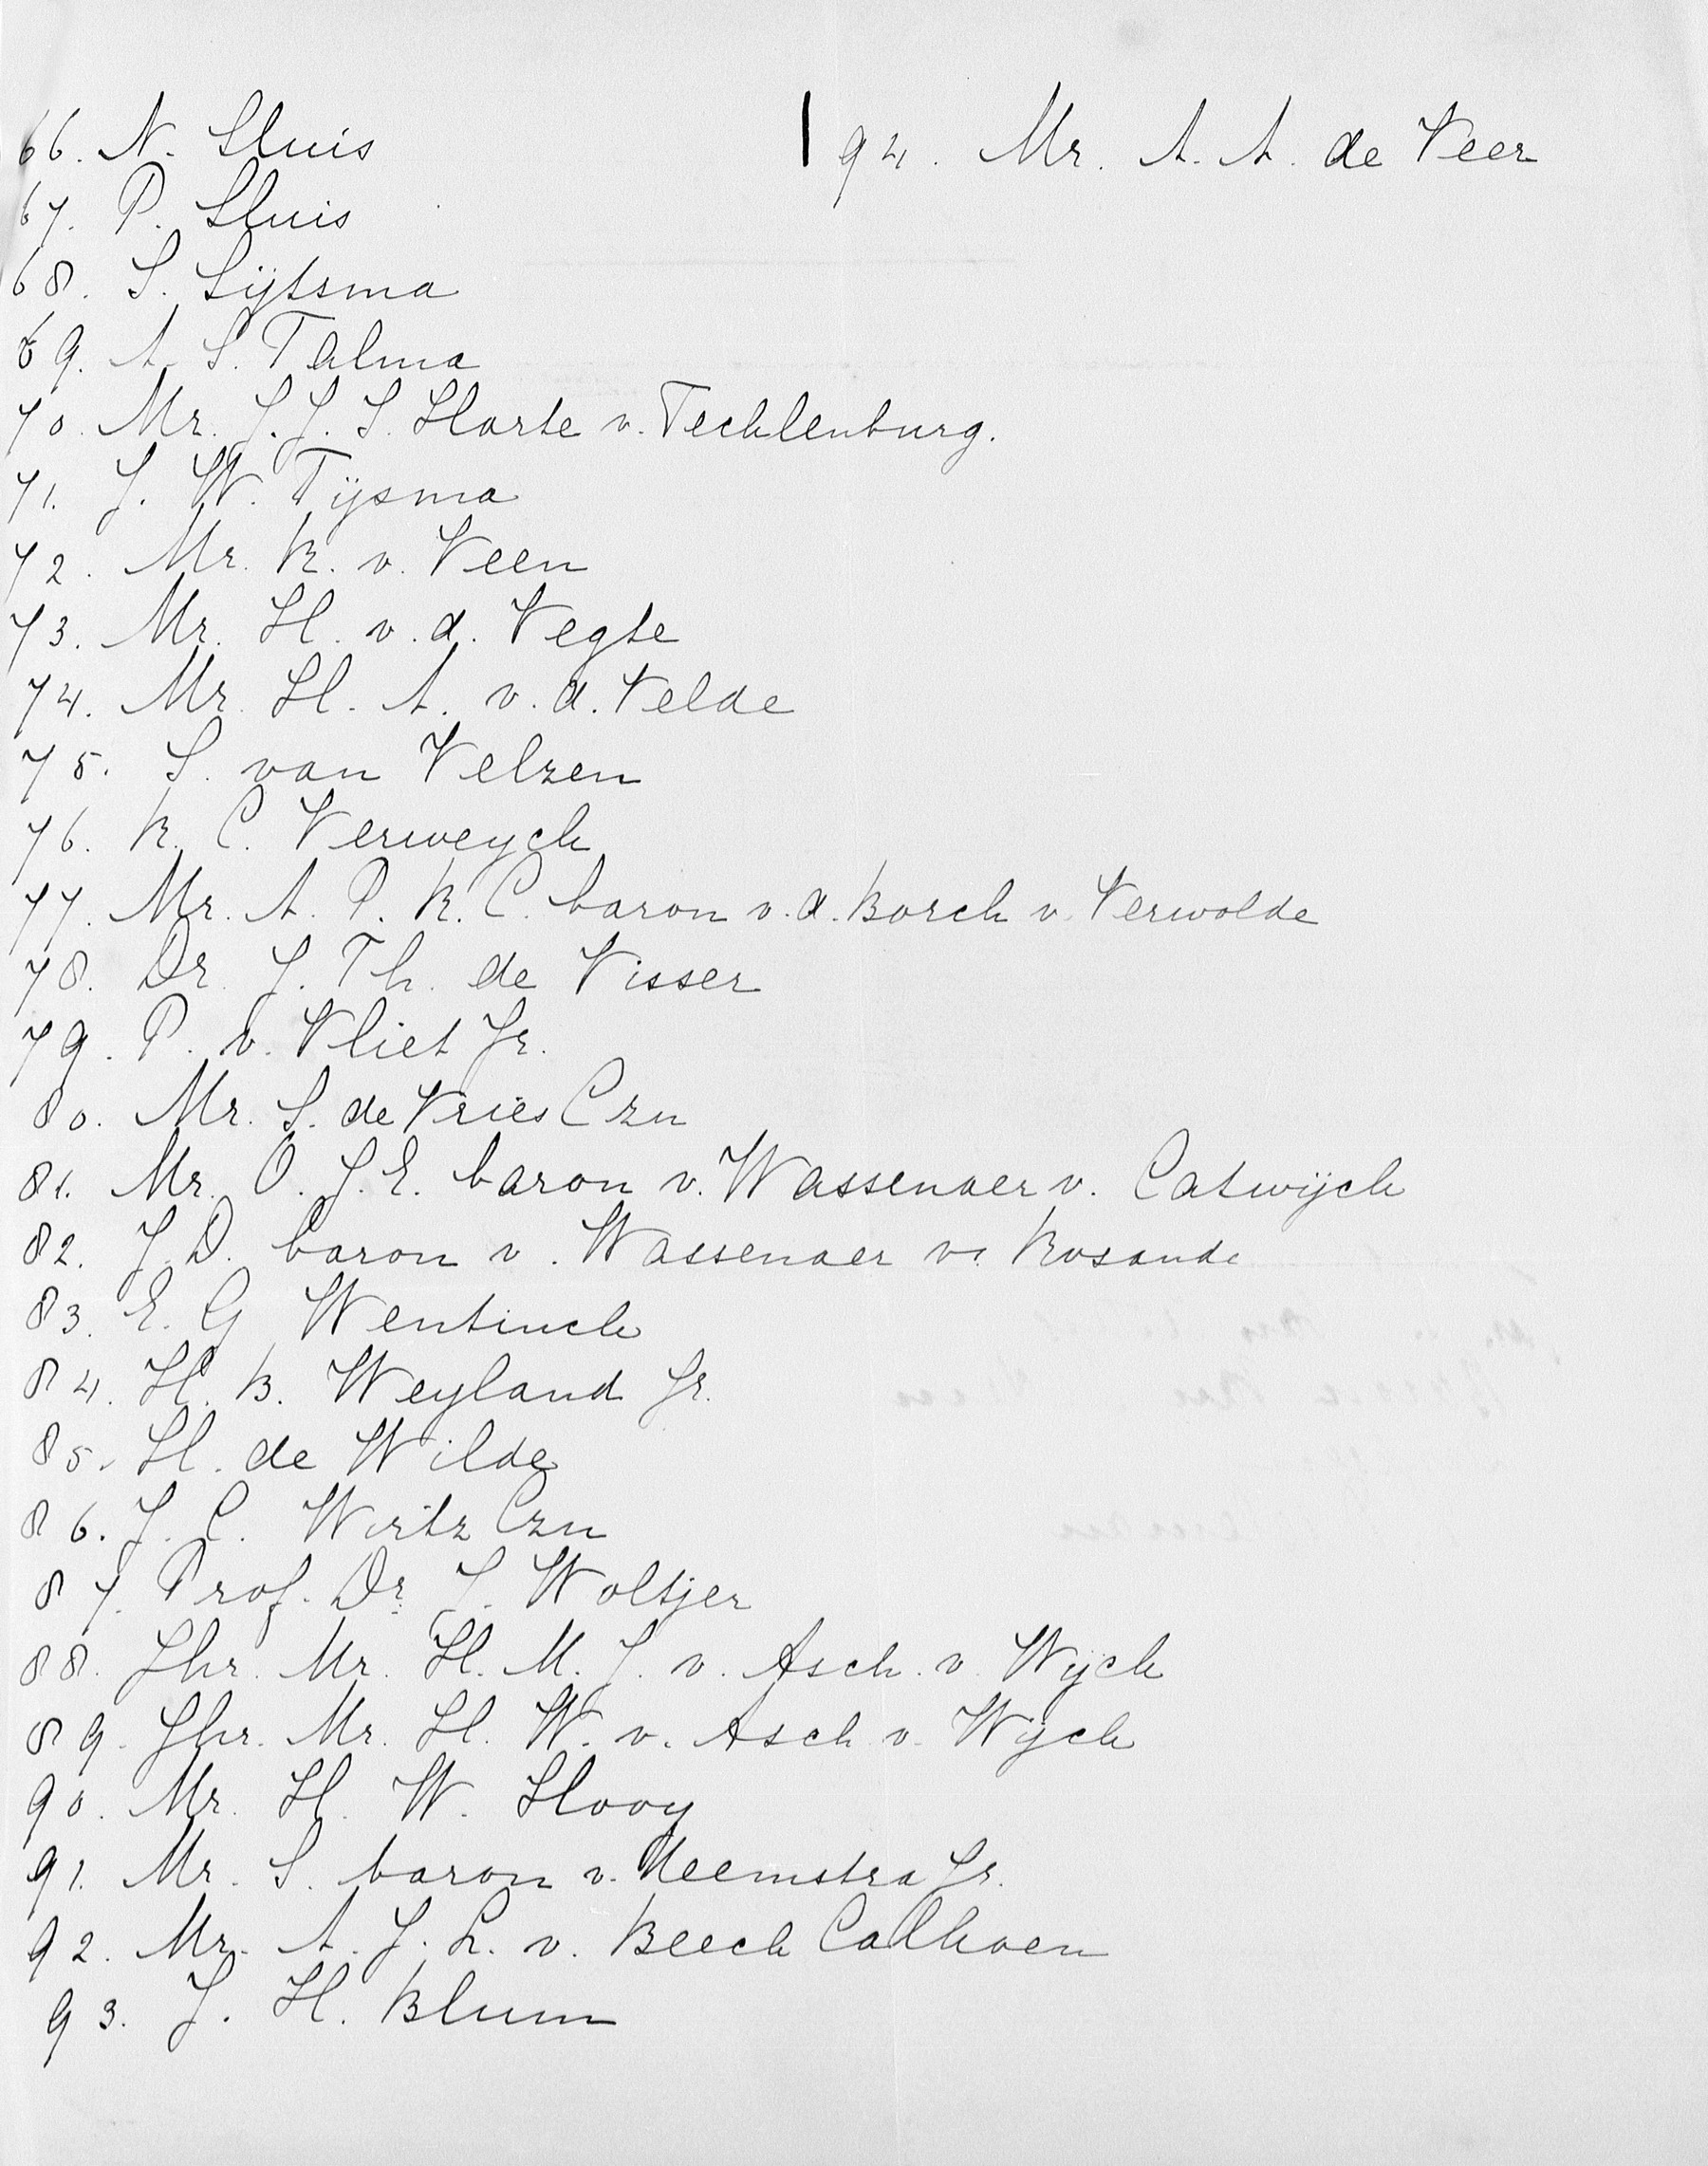 66. N. Sluis
67. P. Sluis
68. S. Sijtsma
69. A. S. Talma
70. Mr. J. J. I. Harte v. Tecklenburg.
71. J. W. Tijsma
72. Mr. R. v. Veen
73. Mr. H. v. d. Vegte
74. Mr. H. A. v. d. Velde
75. S. van Velzen
76. R. C. Verweyck
77. Mr. A. P. R. C. baron v. d. Borch v. Verwolde
78. Dr. J. Th. de Visser
79. P. v. Vliet Jr.
80. Mr. S. de Vries Czn
81. Mr. O. J. E. baron v. Wassenaer v. Catwijck
82. J. D. baron v. Wassenaer v. Rosande
83. E. G. Wentinck
84. H. B. Weyland Jr.
85. H. de Wilde
86. J. C. Wirtz Czn
87. Prof. Dr. J. Woltjer
88. Jhr. Mr. H. M. J. v. Asch v. Wijck
89. Jhr. Mr. H. W. v. Asch v. Wijck
90. Mr. H. W. Hooy
91. Mr. S. baron v. Heemstra Jr.
92. Mr. A. J. L. v. Beeck Calkoen
93. J. H. Blum
94. Mr. A. A. de Veer